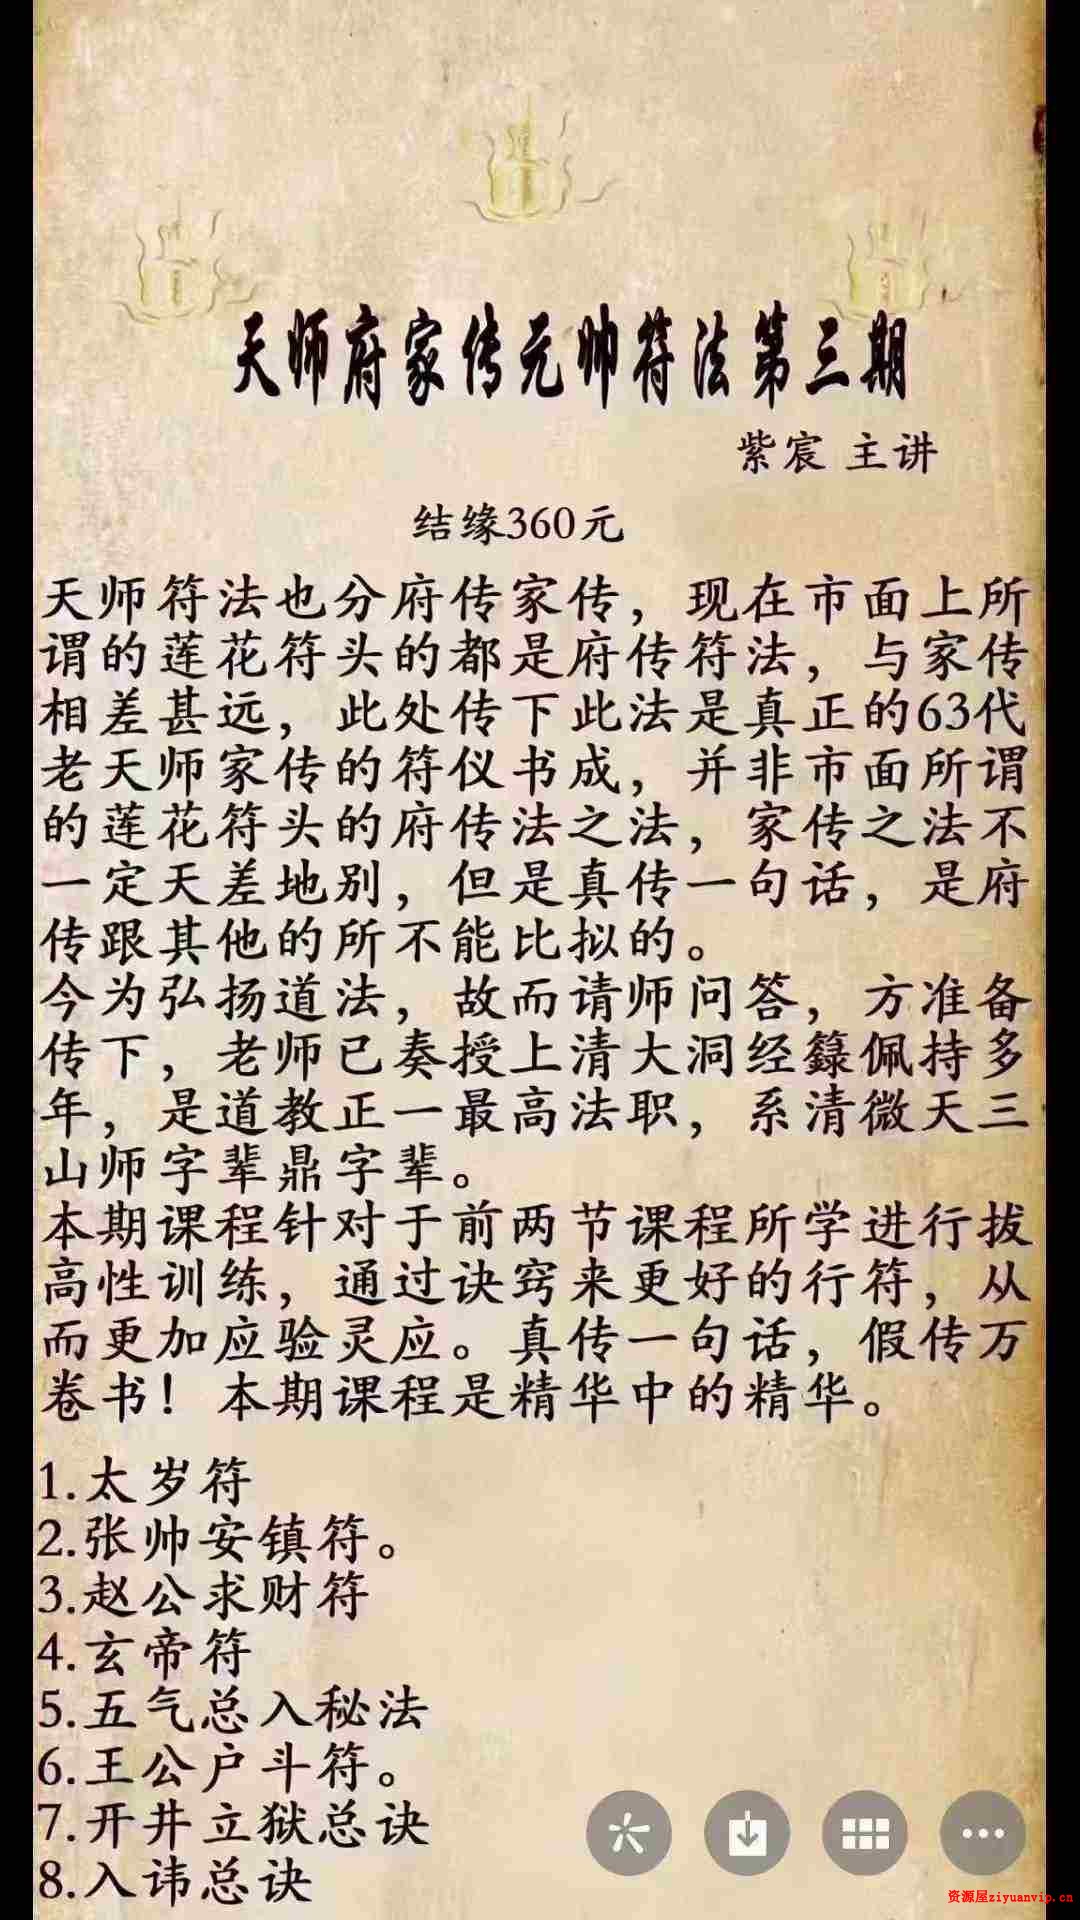 天师府家传元帅符法第三期
紫宸 主讲
结缘360元
天师符法也分府传家传，现在市面上所
谓的莲花符头的都是府传符法，与家传
相差甚远，此处传下此法是真正的63代
老天师家传的符仪书成，并非市面所谓
的莲花符头的府传法之法，家传之法不
一定天差地别，但是真传一句话，是府
传跟其他的所不能比拟的。
今为弘扬道法，故而请师问答，方准备
传下，老师已奏授上清大洞经籙佩持多
年，是道教正一最高法职，系清微天三
山师字辈鼎字辈。
本期课程针对于前两节课程所学进行拔
高性训练，通过诀窍来更好的行符，从
而更加应验灵应。真传一句话，假传万
卷书！本期课程是精华中的精华。
1.太岁符
2.张帅安镇符。
3.赵公求财符
4.玄帝符
5.五气总入秘法
6.王公户斗符。
7.开井立狱总诀
8.入讳总诀
资源屋ziyuanvip.cn